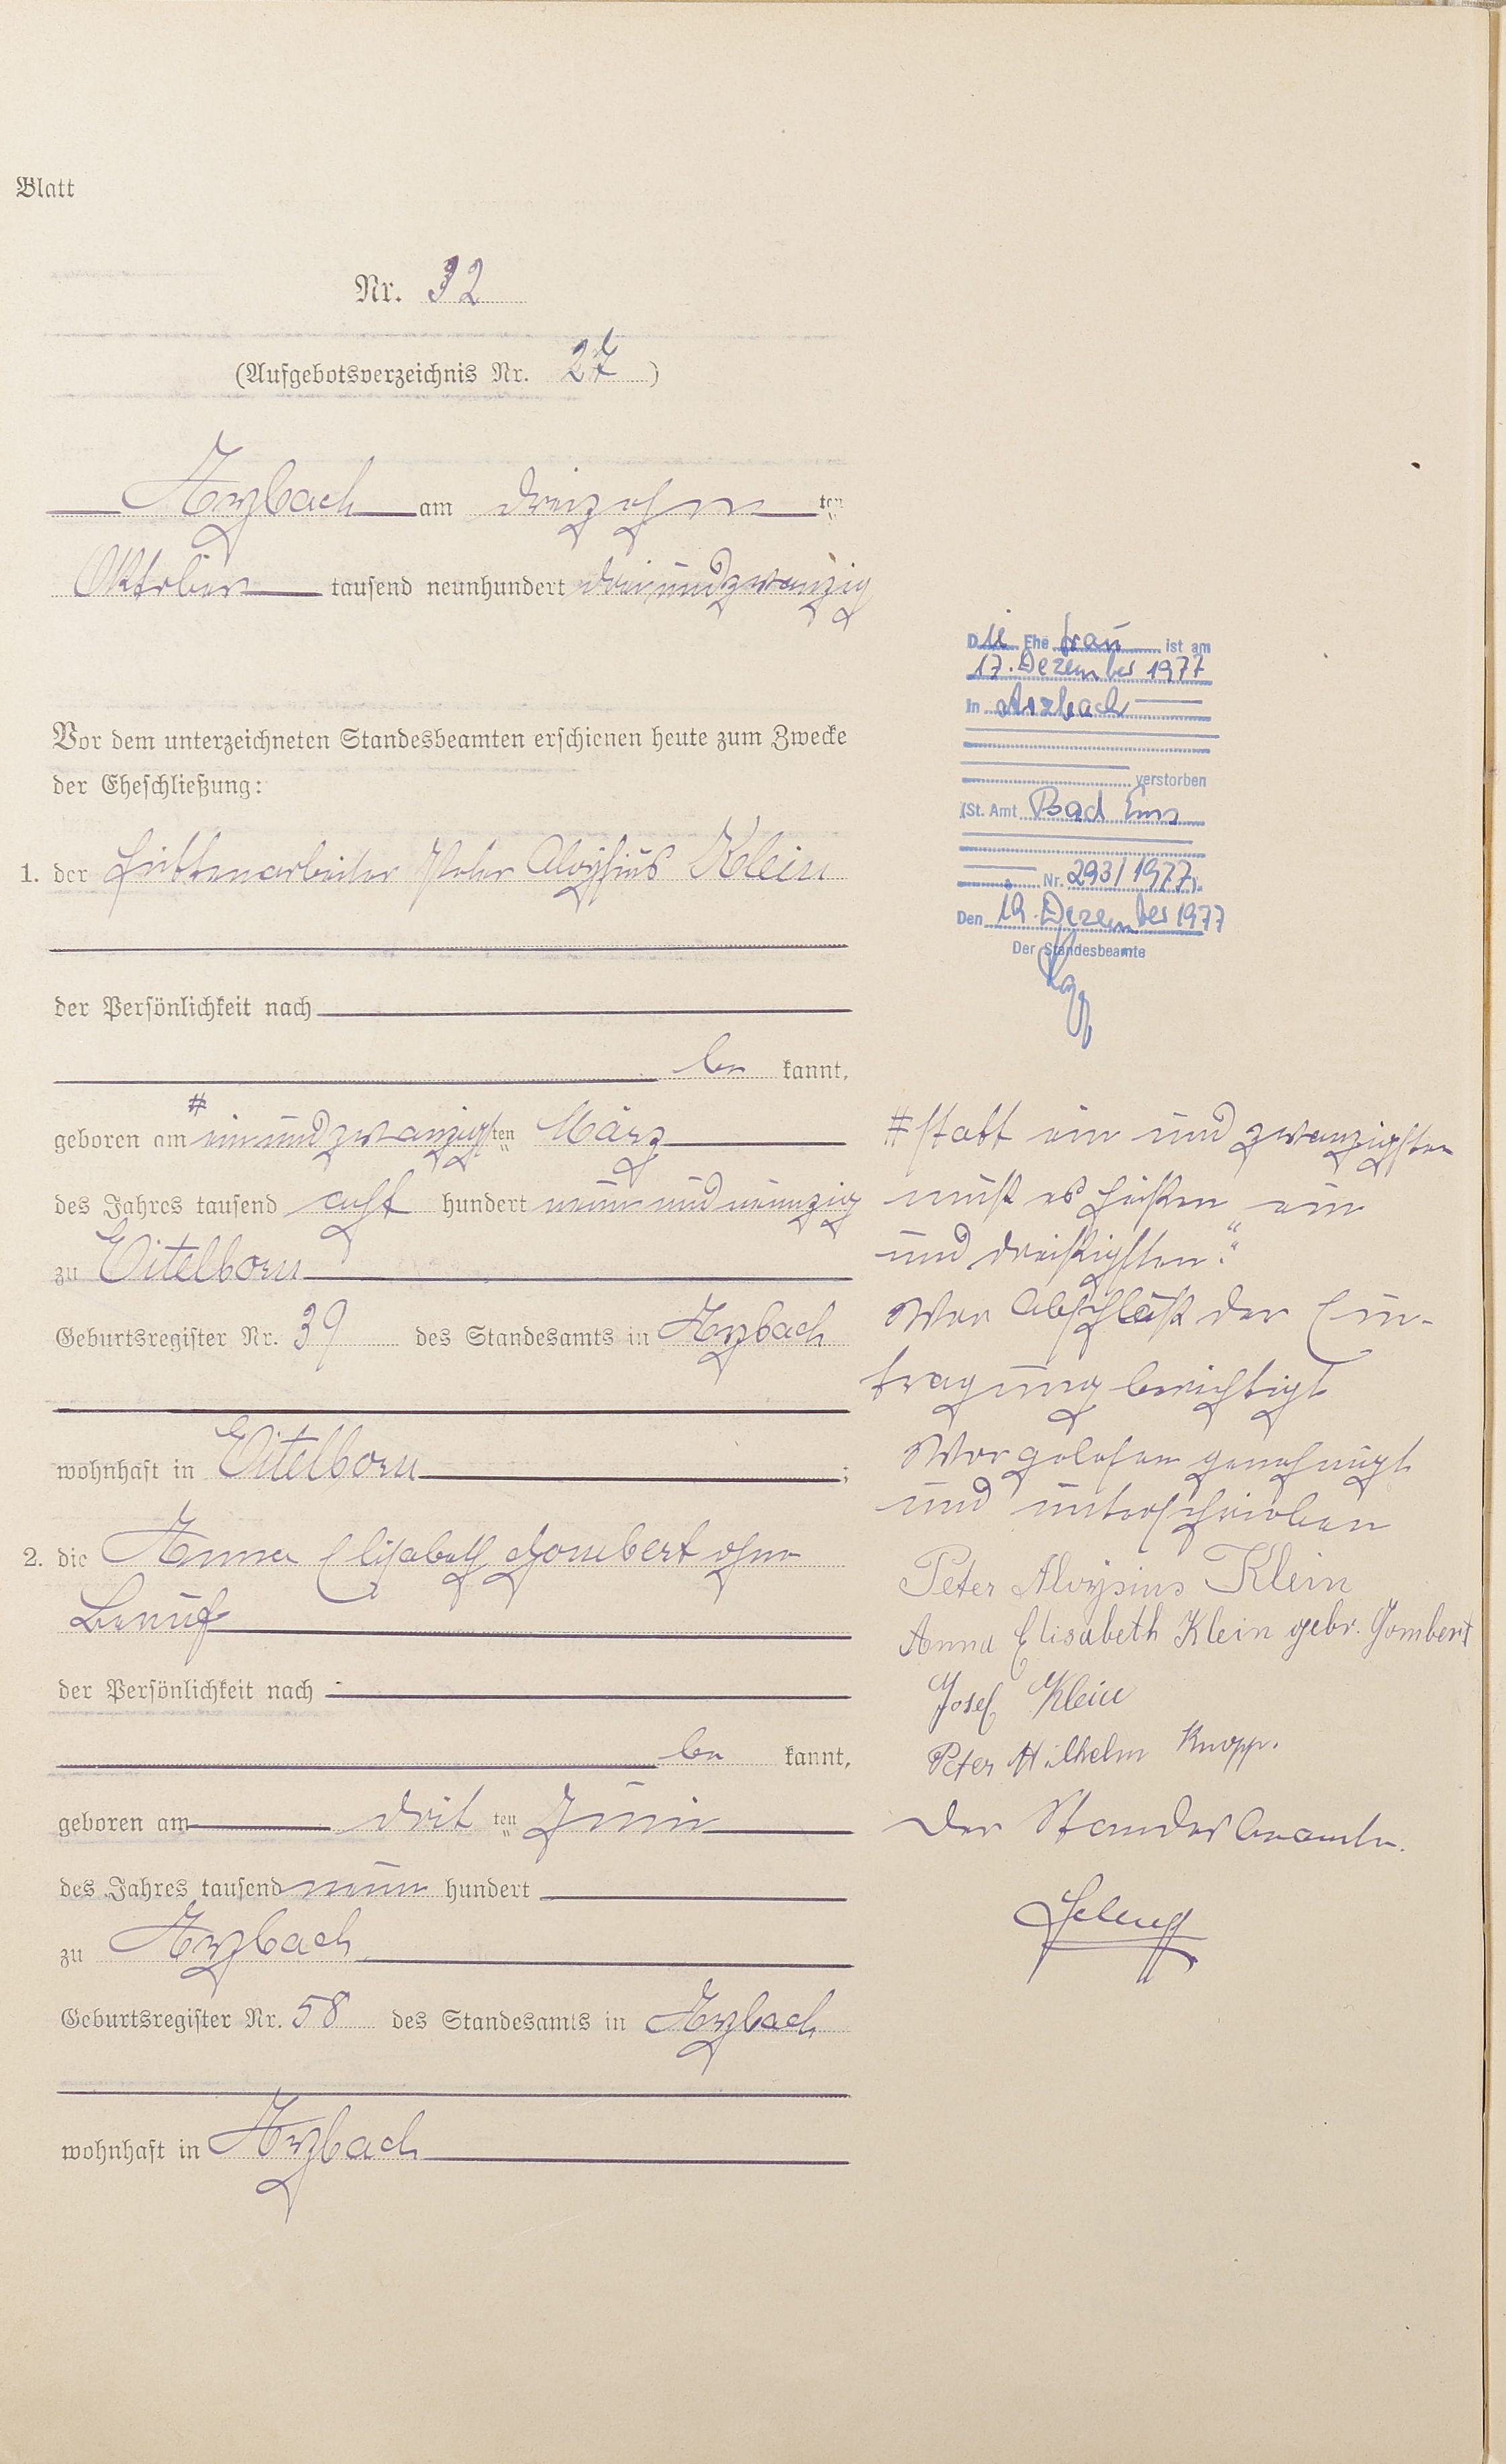 Blatt
Nr. 32
(Aufgebotsverzeichnis Nr. 27)
Arzbach am dreizehn ten
Oktober tausend neunhundert dreiundzwanzig
Vor dem unterzeichneten Standesbeamten erschienen heute zum Zwecke
der Eheschließung:
1. der Hüttenarbeiter Peter Aloysius Klein
der Persönlichkeit nach
be kannt,
geboren am # einundzwanzigsten März
des Jahres tausend acht hundert neunundneunzig
zu Eitelborn
Geburtsregister Nr. 39 des Standesamts in Arzbach
wohnhaft in Eitelborn;
2. die Anna Elisabeth Gombert ohne
Beruf
der Persönlichkeit nach
be kannt,
geboren am drit ten Juni
des Jahres tausend neun hundert
zu Arzbach
Geburtsregister Nr. 58 des Standesamts in Arzbach
wohnhaft in Arzbach
Die Ehe frau ist am
17. Dezember 1977
in Arzbach
verstorben
(St. Amt Bad Ems
Nr. 293/1977).
Den 19. Dezember 1977
Der Standesbeamte
# statt ein und zwanzigsten
muß es heißen ein
und dreißigsten."
Vor Abschluß der Ein-
tragung berichtigt
Vorgelesen genehmigt
und unterschrieben
Peter Aloysius Klein
Anna Elisabeth Klein gebr. Gombert
Josef Klein
Peter Wilhelm Knopp.
Der Standesbeamte.